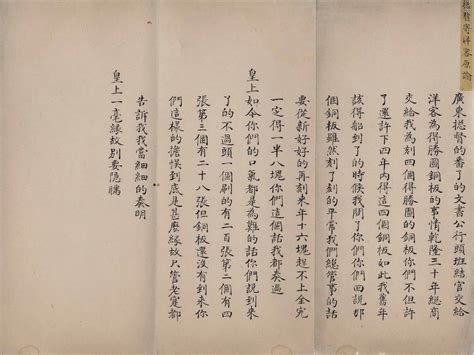 廣東提督的番了的文書公行頭班結官交給
洋客為得勝圖銅板的事情乾隆三十年總商
交給我為刻四個得勝圖的銅板你們不但許
了還許下四年內得這四個銅板如此我舊年
該得船到了的時候我問了你們你們回說那
個銅板雖然刻了刻的平常我們總管事的話
要從新好好的再刻來年十六塊趕不上全完
一定得一半八塊你們這個話我都奏過
皇上如今你們的口氣都是為難的話你們說到來
了的不過頭一個刷的有二百張第二個有四
張第三個有二十八張但銅板還沒有到來你
們這樣的擔悞到底是甚麼緣故只管老寔都
告訴我我當細細的奏明
皇上一毫緣故別要隱瞞